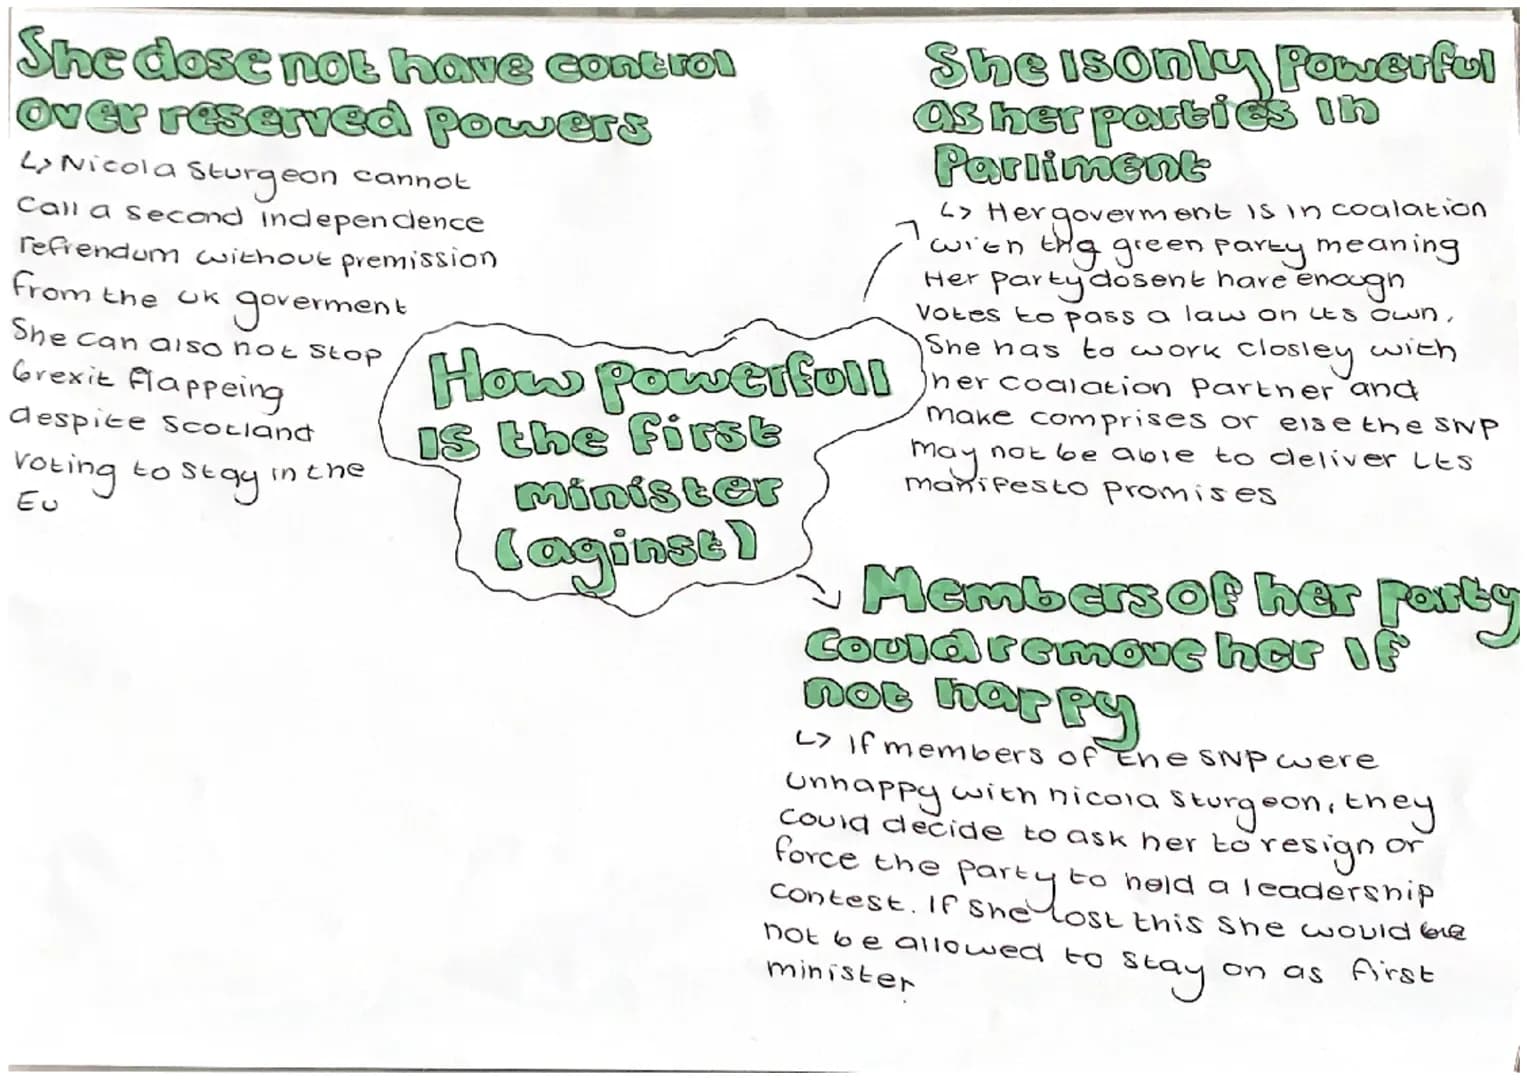 She dose not have control
over reserved powers
↳ Nicola Sturgeon cannot
Call a second independence
refrendum without premission
from the UK goverment
She can also not stop
brexit flappeing
despite Scotland
voting to stay in the
EU
How powerfull
is the first
minister
(aginst)
She is only powerful
as her parties in
Parliment
↳ Her goverment is in coalation
with the green party meaning
Her party dosent have enough
votes to pass a law on its own.
She has to work closley with
her coalation partner and
make comprises or else the SNP
may not be able to deliver its
manifesto promises
Members of her party
Could remove her if
not happy
↳ If members of the SNP were
unhappy with nicola Sturgeon, they
could decide to ask her to resign or
force the party to hold a leadership
contest. If she lost this she would
not be allowed to stay on as first
minister